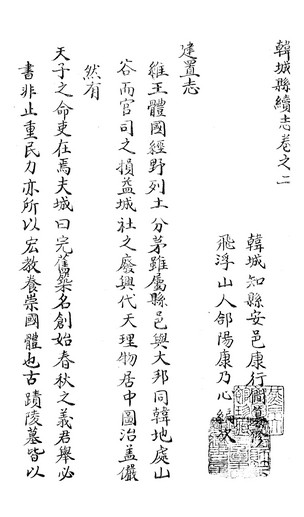 韓城縣續志卷之二
韓城知縣安邑康行僴纂修
飛浮山人郃陽康乃心編次
建置志
維王體國經野列土分茅雖屬縣邑與大邦同韓地處山
谷而官司之損益城社之廢興代天理物居中圖治蓋儼
然有
天子之命吏在焉夫城曰完舊築名創始春秋之義君舉必
書非止重民力亦所以宏教養崇國體也古蹟陵墓皆以